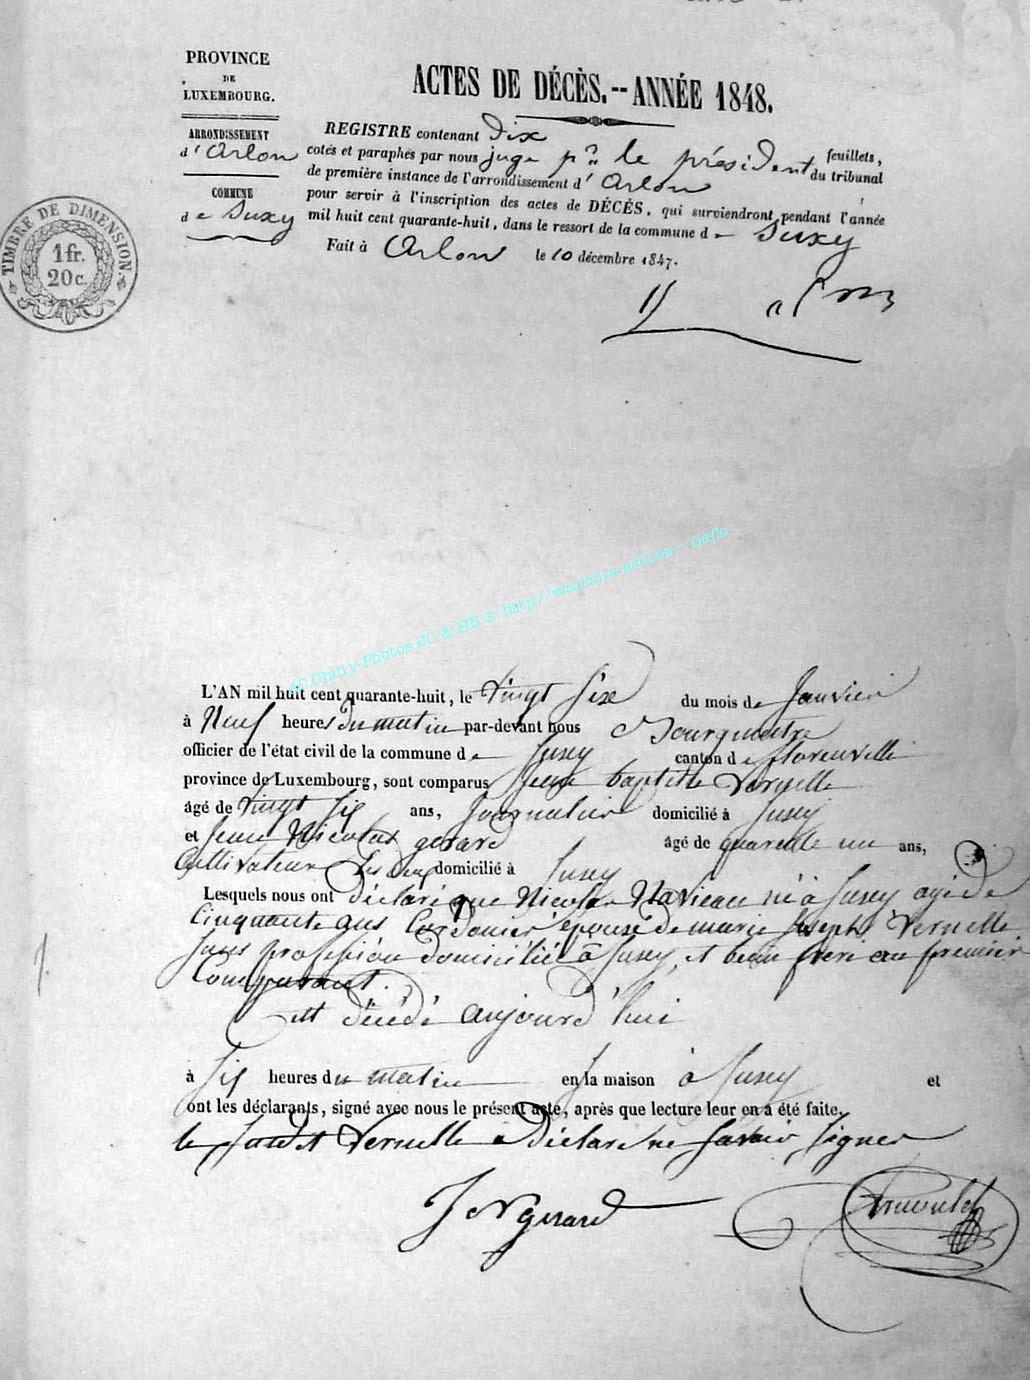 PROVINCE
DE
LUXEMBOURG.
ARRONDISSEMENT
d'Arlon
COMMUNE
de Suxy
TIMBRE DE DIMENSION
1 fr.
20 c.
ACTES DE DÉCÈS.--ANNÉE 1848.
REGISTRE contenant Dix feuillets,
cotés et paraphés par nous juge pr. le président du tribunal
de première instance de l'arrondissement d'Arlon
pour servir à l'inscription des actes de DÉCÉS, qui surviendront pendant l'année
mil huit cent quarante-huit, dans le ressort de la commune de Suxy
Fait à Arlon le 10 décembre 1847.
AC Chiny-Photos JC & HB & http//wallonia-asbl.be - Geflo
L'AN mil huit cent quarante-huit, le vingt Six du mois de Janvier
à Neuf heures du matin par-devant nous Bourgmestre
officier de l'état civil de la commune de Suxy canton de florenville
province de Luxembourg, sont comparus Jean baptiste Vernelle
âgé de vingt Six ans, Journalier domicilié à Suxy
et Jean Nicolas gerard âgé de quarente un ans,
Cultivateur les deux domicilié à Suxy
Lesquels nous ont Déclaré que Nicolas Navieau né à Suxy agé de
Cinquante ans Cordonier épousé de marie Joseph Vernelle
sans profession domiciliée à Suxy, et beau frere au premier
Comparant.
est décédé aujourd'hui
à Six heures du matin en sa maison à Suxy et
ont les déclarants, signé avec nous le présent acte, après que lecture leur en a été faite.
le Susdit Vernelle a Déclaré ne Savoir Signer
J N gerard